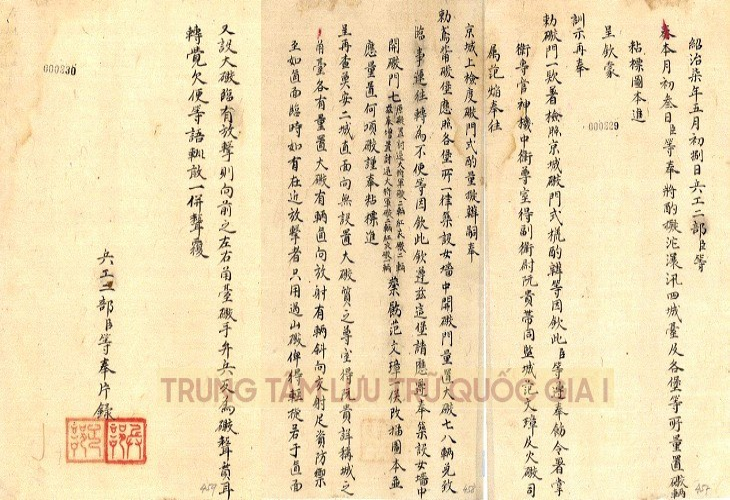 紹治柒年五月初捌日兵工二部臣等
奏本月初叁日臣等奉將酌擬沱㶞汛四城臺及各堡等所量置礮輛
粘標圖本進
呈欽蒙
訓示再奉
勅礮門一款着檢照京城礮門式樣酌辦等因欽此臣等遵奉飭令署掌
衛專官神機中衛尊室得副衛尉阮貴帶同監城范文璋及火礮司
屬范焰奉往
京城上檢度礮門式酌量礮辦嗣奉
勅鳶嘴礮堡應照各堡所一律築設女墻中開礮門量置大礮七八輛免致
臨事運往轉為不便等因欽此欽遵茲這堡請應奉築設女墻中
開礮門七 范文璋候改描圖本並
應量置何項礮謹奉粘標進
呈再查奠安二城直面向無設置大礮質之尊室得阮貴謂稱城之
角臺各有量置大礮有輛直向放射有輛斜向交射足資防禦
至如直面臨時如有在近放擊者只用過山礮俾得輕捷若于直面
又設大礮臨有放擊則向前之左右角臺礮手弁兵 為礮聲 耳
轉覺欠便等語輒敢一併聲覆
兵工二部臣等奉片錄
000829
000830
457
458
459
TRUNG TÂM LƯU TRỮ QUỐC GIA I